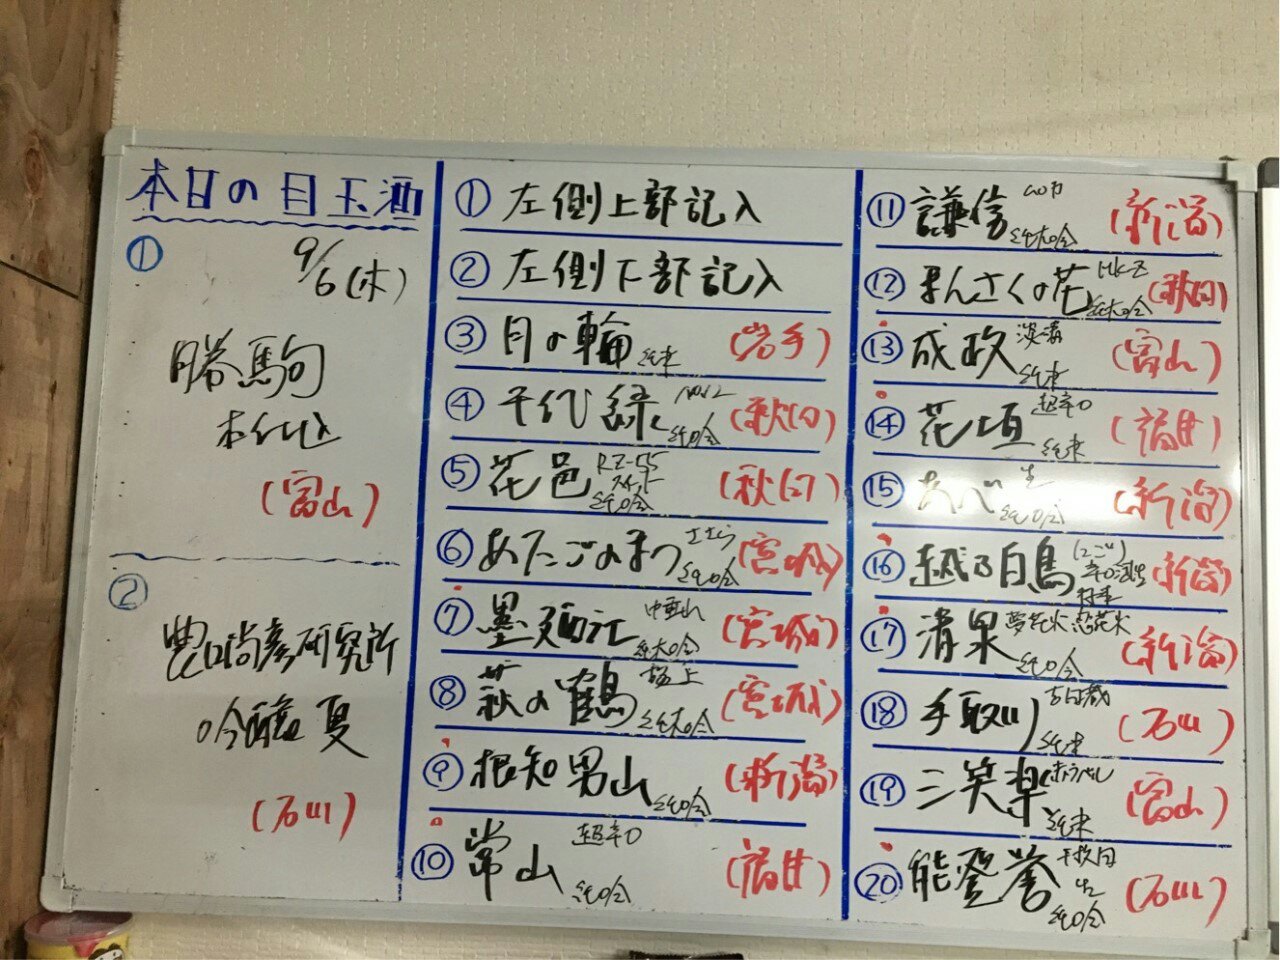 本日の目玉酒
① 9/6(木)
勝駒
本仕込
(富山)
②
豊口尚彦研究所
吟醸 夏
(石川)
① 左側上部記入
② 左側下部記入
③ 月の輪 純米 (岩手)
④ 千代緑 No.12 純吟 (秋田)
⑤ 花邑 RZ-55 純吟 (秋田)
⑥ あたごのまつ ささら 純吟 (宮城)
⑦ 墨廼江 中垂れ 純大吟 (宮城)
⑧ 萩の鶴 極上 純大吟 (宮城)
⑨ 根知男山 純吟 (新潟)
⑩ 常山 超辛口 純吟 (福井)
⑪ 謙信 純大吟 (新潟)
⑫ まんさくの花 MK-Z 純大吟 (秋田)
⑬ 成政 純米 (富山)
⑭ 花垣 超辛口 純米 (福井)
⑮ あべ 生 純吟 (新潟)
⑯ 越乃白鳥 (にごり) 辛口活性 特純 (新潟)
⑰ 清泉 夢花火 恋花火 純吟 (新潟)
⑱ 手取川 吉田蔵 純米 (石川)
⑲ 三笑楽 赤ラベル 純米 (富山)
⑳ 能登誉 千枚田 生 純吟 (石川)